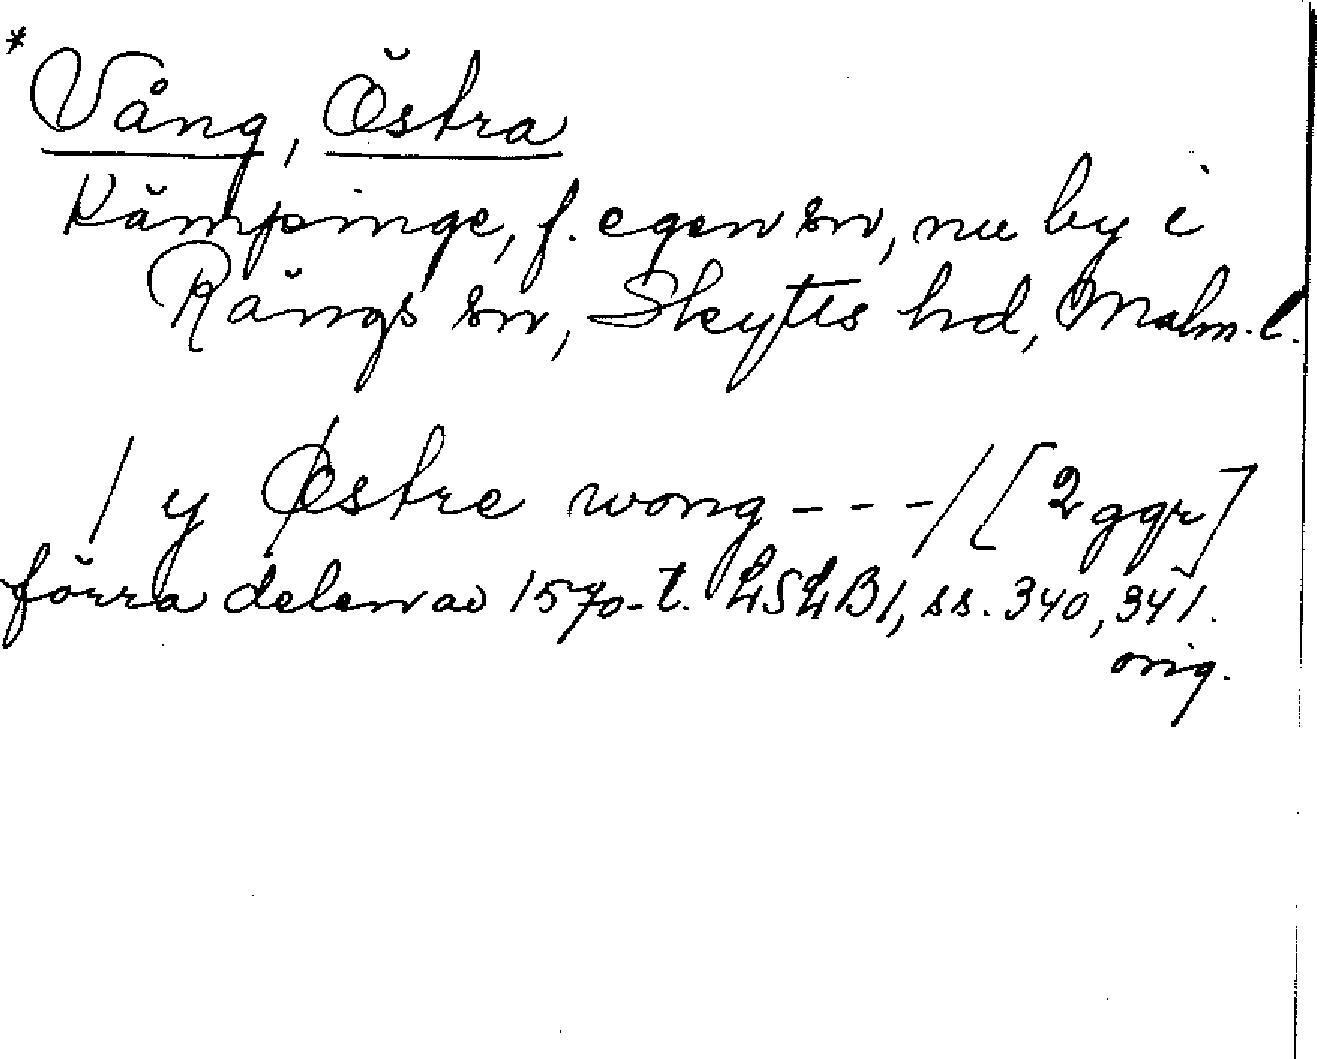 *
Vång, Östra
Kämpinge, f. egen sn, nu by i
Rängs sn, Skytts hd, Malm. l.
/ y Østre wong --- / [2 ggr]
förra delen av 1570-t. LSLB1, ss. 340, 341.
orig.